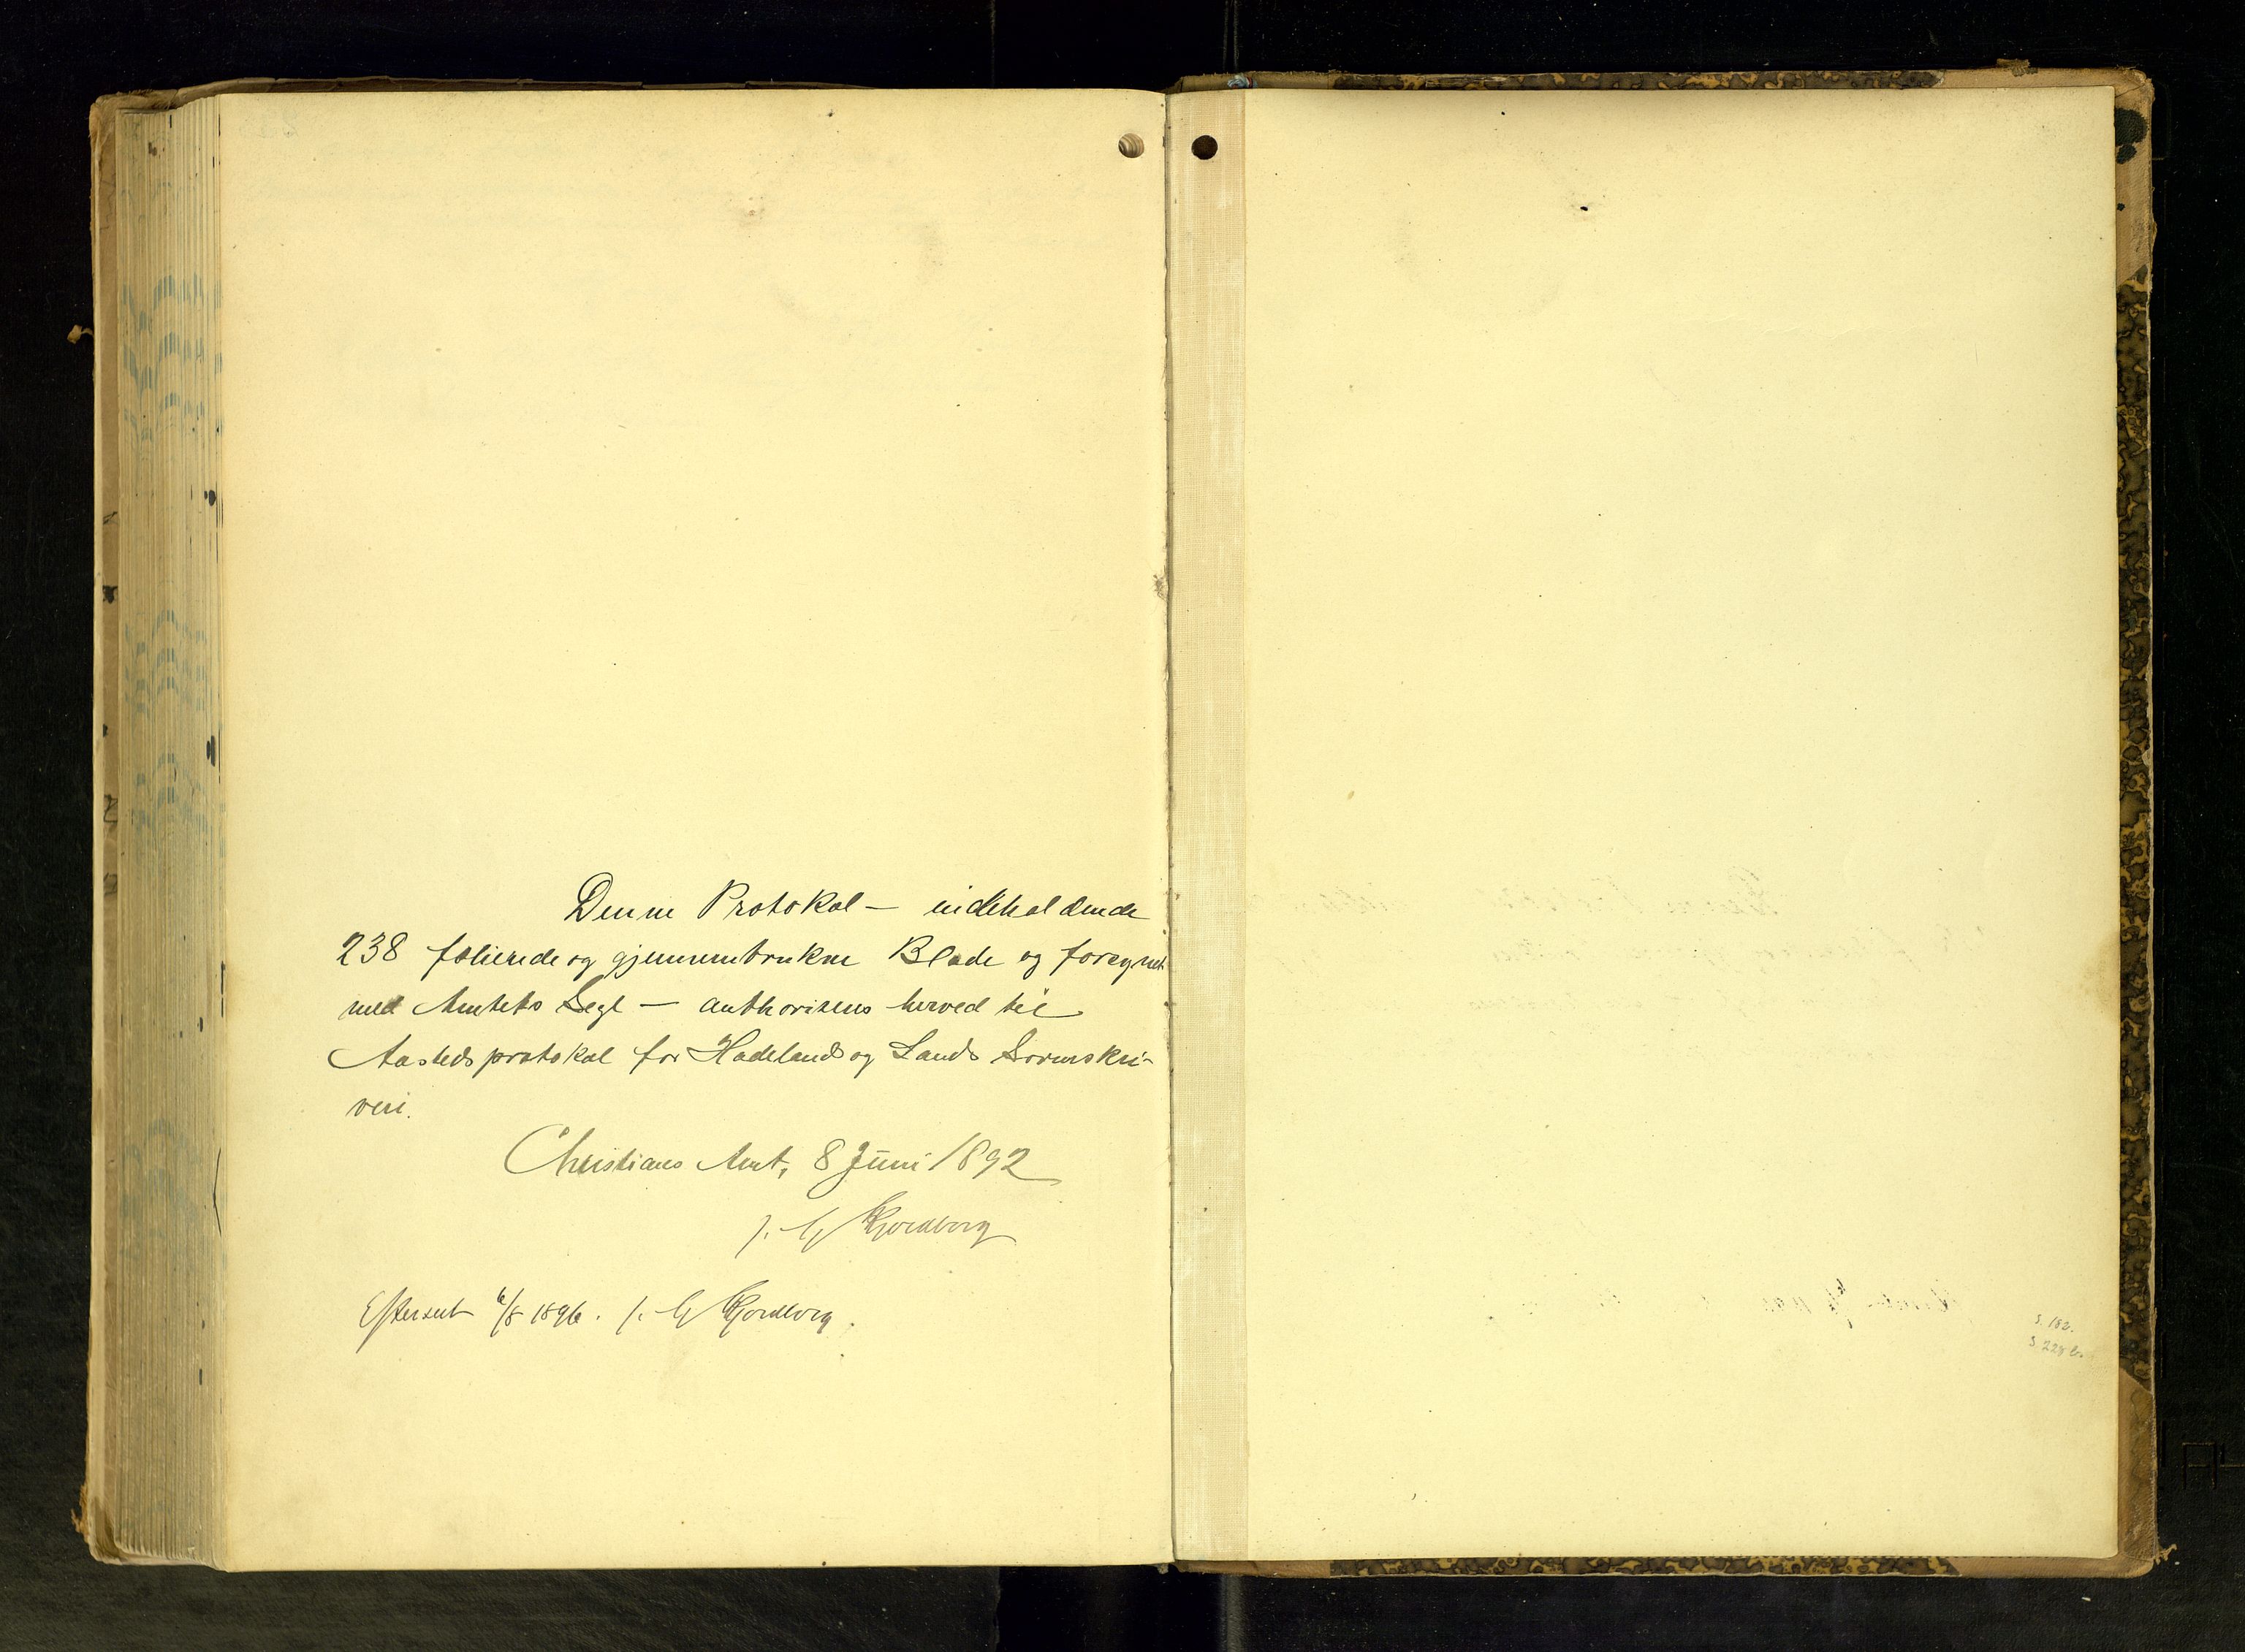 Denne Protokol — indeholdende
238 folierede og gjennemtrukne Blade og forsynet
med Amtets Segl — authoriseres herved til
Aastedsprotokol for Hadeland og Lands Sorenskri-
veri.
Christians Amt, 8 Juni 1892
Efterseet 6/8 1896.
S. 182.
S. 228 b.